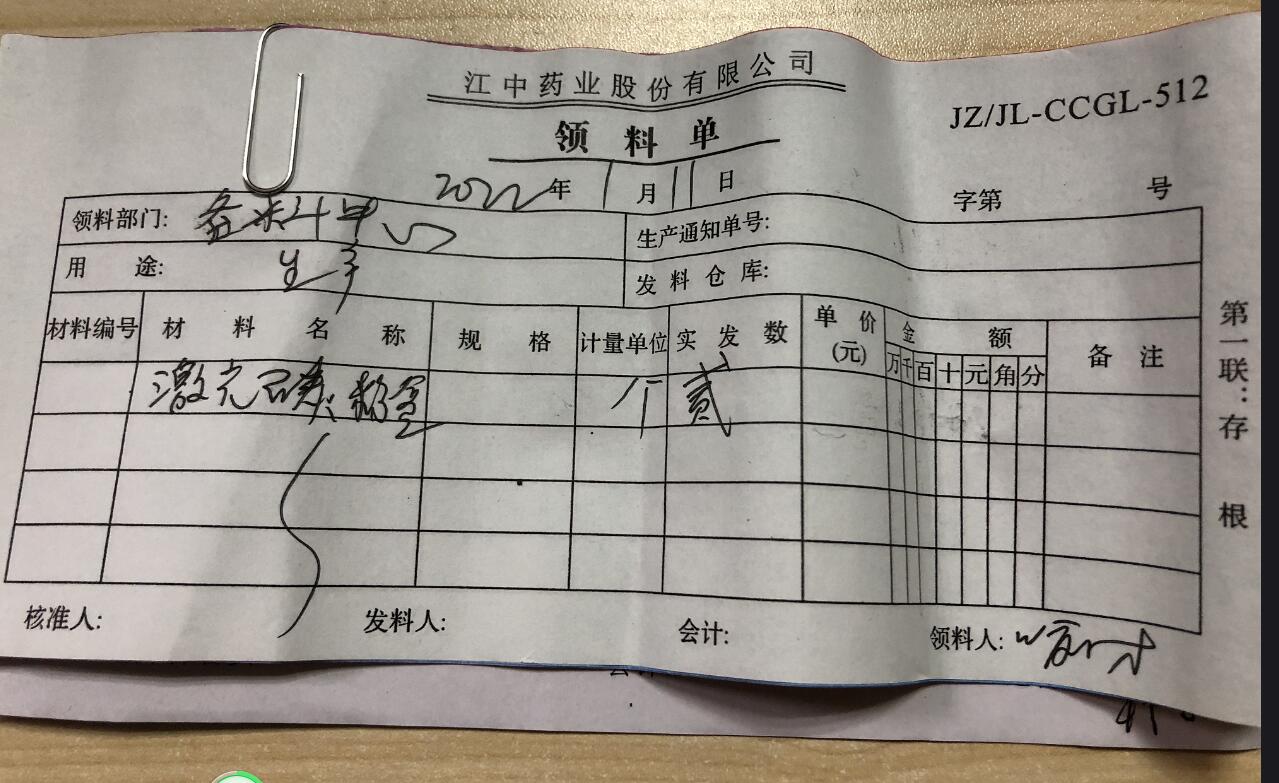 江中药业股份有限公司
JZ/JL-CCGL-512
领料单
2022年1月11日
字第 号
领料部门: 备料中心
生产通知单号:
用途: 生产
发料仓库:
材料编号 材料名称 规格 计量单位 实发数 单价(元) 金额 备注
万 千 百 十 元 角 分
激光 个 贰
核准人: 发料人: 会计: 领料人:
第一联:存根